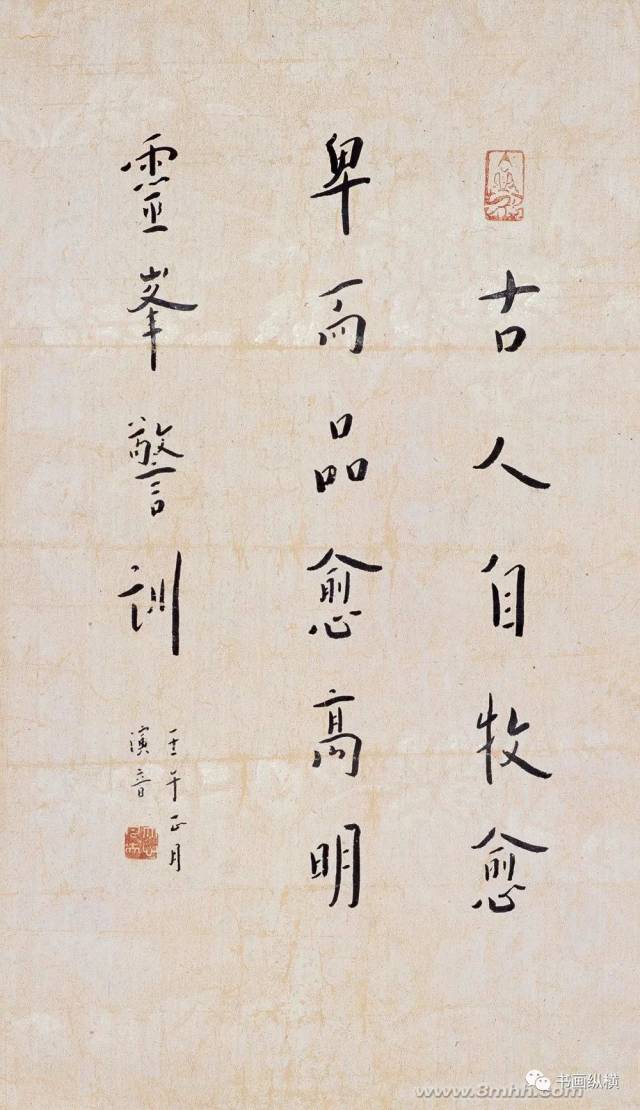 古人自牧愈
卑而品愈高明
靈峯警訓
壬午正月
演音
书画纵横
www.8mhh.com